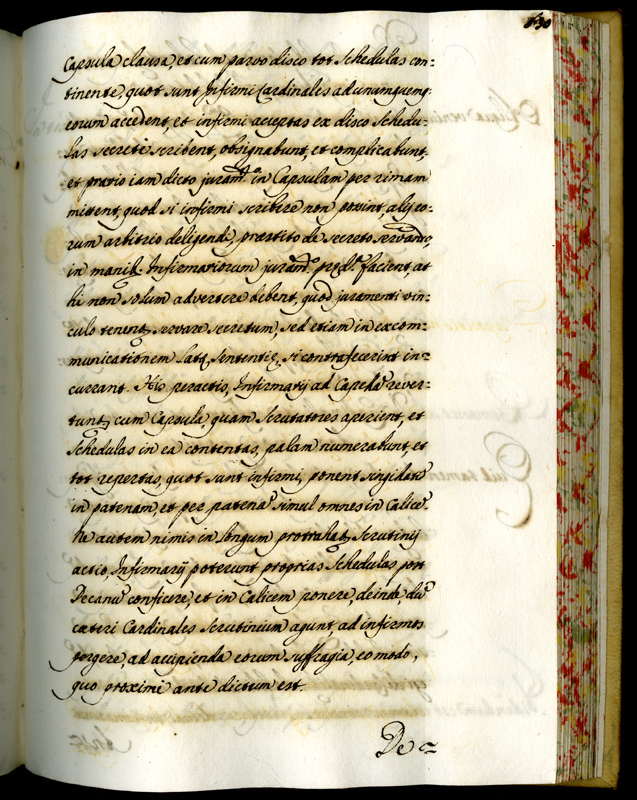 Capsula clausa, et cum parvo disco tot Schedulas con=
tinente, quot sunt Infirmi Cardinales ad unumquemq;
eorum accedent, et infirmi acceptas ex disco Schedu=
las secretè scribent, obsignabunt, et complicabunt,
et prævio iam dicto juram.to in Capsulam per rimam
mittent, quod si infirmi scribere non possint, alij eo=
rum arbitrio deligendi, præstito de secreto servando,
in manib. Infirmariorum juram.to præd.a facient, at
hi non solum advertere debent, quod juramenti vin=
culo tenent, servare secretum, sed etiam in excom=
municationem latę Sententię, si contrafecerint in=
currant. His peractis, Infirmarij ad Capellã rever=
tunt, cum Capsula, quam Scrutatores aperient, et
Schedulas in ea contentas, palam numerabunt, et
tot repertas, quot sunt infirmi, ponent singulatĩ
in patenam, et per patenã simul omnes in Calicẽ.
Ne autem nimis in longum protrahat, Scrutinij
actio, Infirmarij poterunt proprias Schedulas, post
Decanũ conficere, et in Calicem ponere, deinde, dũ
cæteri Cardinales Scrutinium agunt, ad infirmos
pergere, ad accipienda eorum suffragia, eo modo,
quo proximi ante dictum est.
De =